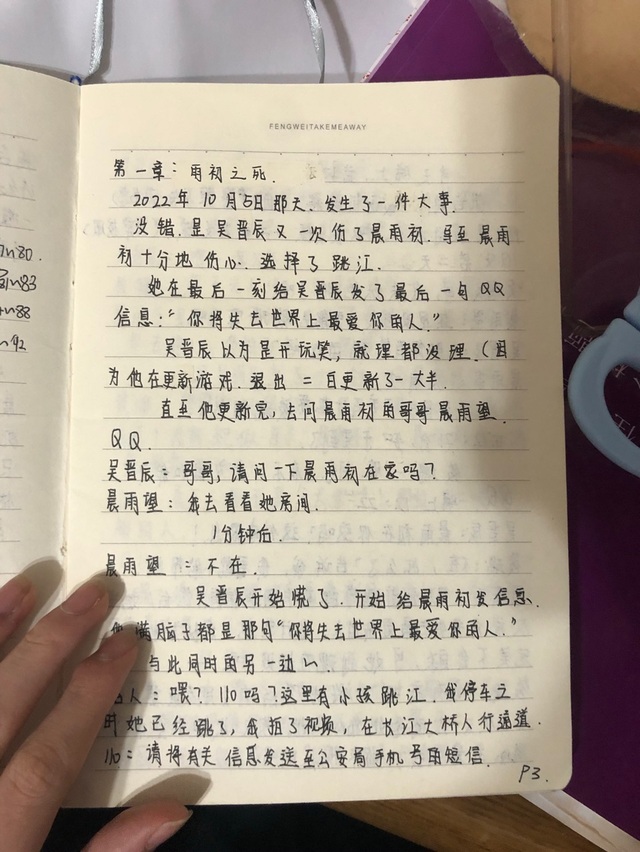 FENGWEITAKEMEAWAY
第一章：雨初之死.
2022年10月5日那天.发生了一件大事.
没错.是吴晋辰又一次伤了晨雨初.导至晨雨
初十分地伤心.选择了跳江.
她在最后一刻给吴晋辰发了最后一句QQ
信息:"你将失去世界上最爱你的人."
吴晋辰以为是开玩笑，就理都没理.(因
为他在更新游戏.退出=白更新了一大半.
直至他更新完，去问晨雨初的哥哥晨雨望.
QQ.
吴晋辰：哥哥，请问一下晨雨初在家吗？
晨雨望：我去看看她房间.
1分钟后.
晨雨望：不在.
吴晋辰开始慌了.开始给晨雨初发信息.
满脑子都是那句"你将失去世界上最爱你的人."
与此同时的另一边~
人：喂？110吗？这里有小孩跳江.我停车之
时她已经跳了，我拍了视频，在长江大桥人行通道.
110：请将有关信息发送至公安局手机号的短信.
P3.
n80.
n83
n88
n92